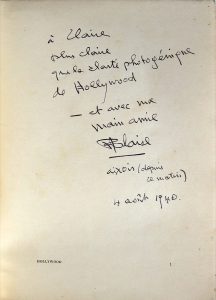 à Claire
plus claire
que la clarté photogénique
de Hollywood
— et avec ma
main amie
Blaise
aixois (depuis
ce matin)
4 août 1940.
HOLLYWOOD
1